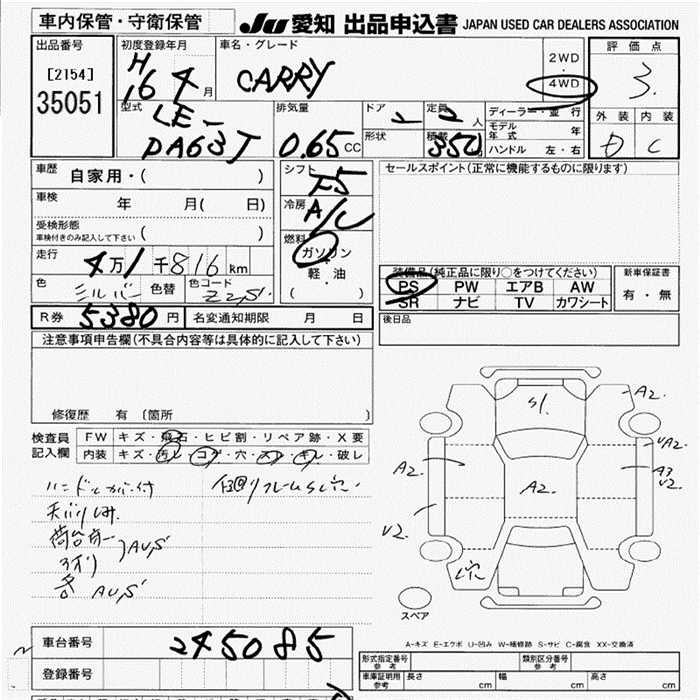 車内保管・守衛保管
JU 愛知 出品申込書 JAPAN USED CAR DEALERS ASSOCIATION
出品番号
[2154]
35051
初度登録年月
H16 4月
車名・グレード
CARRY
2WD
・
4WD
評価点
3.
外装 内装
D C
型式
LE-
DA63T
排気量
0.65 CC
ドア
2
形状
定員
2人
積載
350
ディーラー・並行
モデル年式 年
ハンドル 左・右
車歴
自家用・( )
車検
年 月( 日)
受検形態
車検付きのみ記入して下さい ( )
走行
4万1千816km
色
シルバー
色替
色コード
Z2S
シフト
F5
冷房
A/C
燃料
ガソリン
軽油
( )
セールスポイント(正常に機能するものに限ります)
装備品(純正品に限り○をつけてください)
PS PW エアB AW
SR ナビ TV カワシート
新車保証書
有・無
R券 5380円 名変通知期限 月 日
後日品
注意事項申告欄(不具合内容等は具体的に記入して下さい)
修復歴 有 〔箇所 〕
検査員
記入欄
FW キズ・飛石・ヒビ割・リペア跡・X要
内装 キズ・汚レ・コゲ・穴・スレ・キレ・破レ
ハンドルカバー付
荷台
AUS
AUS
S1.
A2.
A2.
A2.
A2.
A3
U2.
U2.
スペア
A-キズ E-エクボ U-凹み W-補修跡 S-サビ C-腐食 XX-交換済
車台番号 245085
登録番号
形式指定番号
参考
類別区分番号
参考
車庫証明用
参考
長さ cm 幅 cm 高さ cm